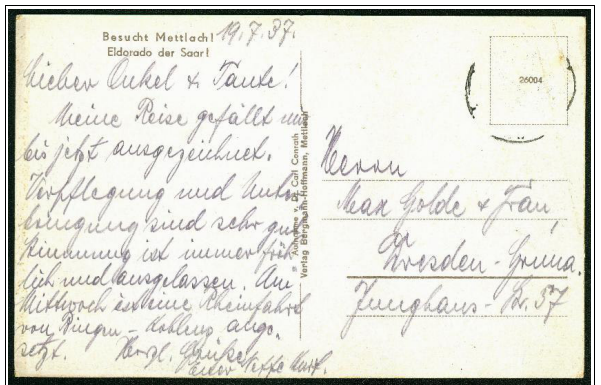 Besucht Mettlach!
Eldorado der Saar!
19.7.37.
Lieber Onkel & Tante!
Meine Reise gefällt mir
bis jetzt ausgezeichnet.
Verpflegung und Unter-
bringung sind sehr gut
Stimmung ist immer fröh-
lich und ausgelassen. Am
Mittwoch ist eine Rheinfahrt
von Bingen - Koblenz ange-
setzt. Herzl. Grüße
Euer Neffe Kurt.
Aufnahme v. Dr. Carl Conrath
Verlag Bergmann-Hoffmann, Mettlach
26004
Herrn
Max Golde & Frau,
Dresden-Gruna.
Junghans-Str. 37